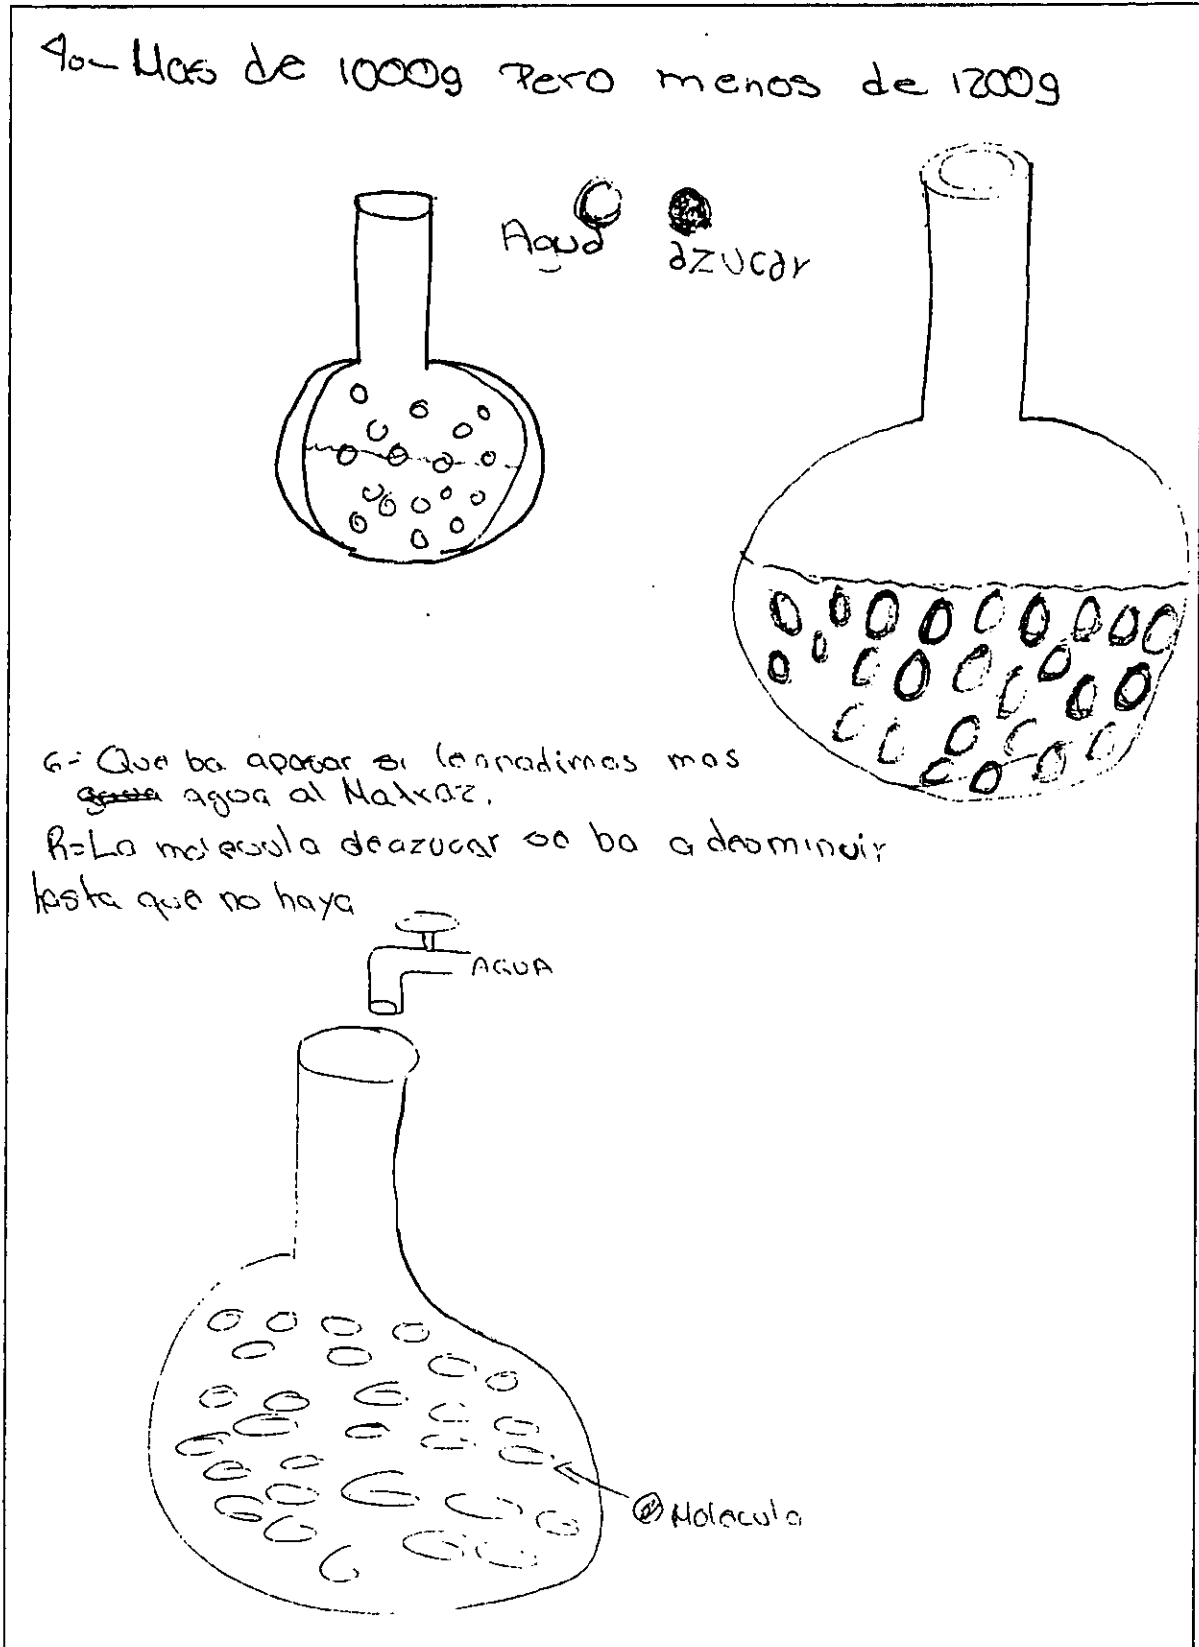 4o- Mas de 1000g Pero menos de 1200g
Agua
azucar
6= Que ba apasar si lennadimas mas
agua al Matraz.
R=La molecula deazucar se ba a desminuir
hasta que no haya
AGUA
Molecula